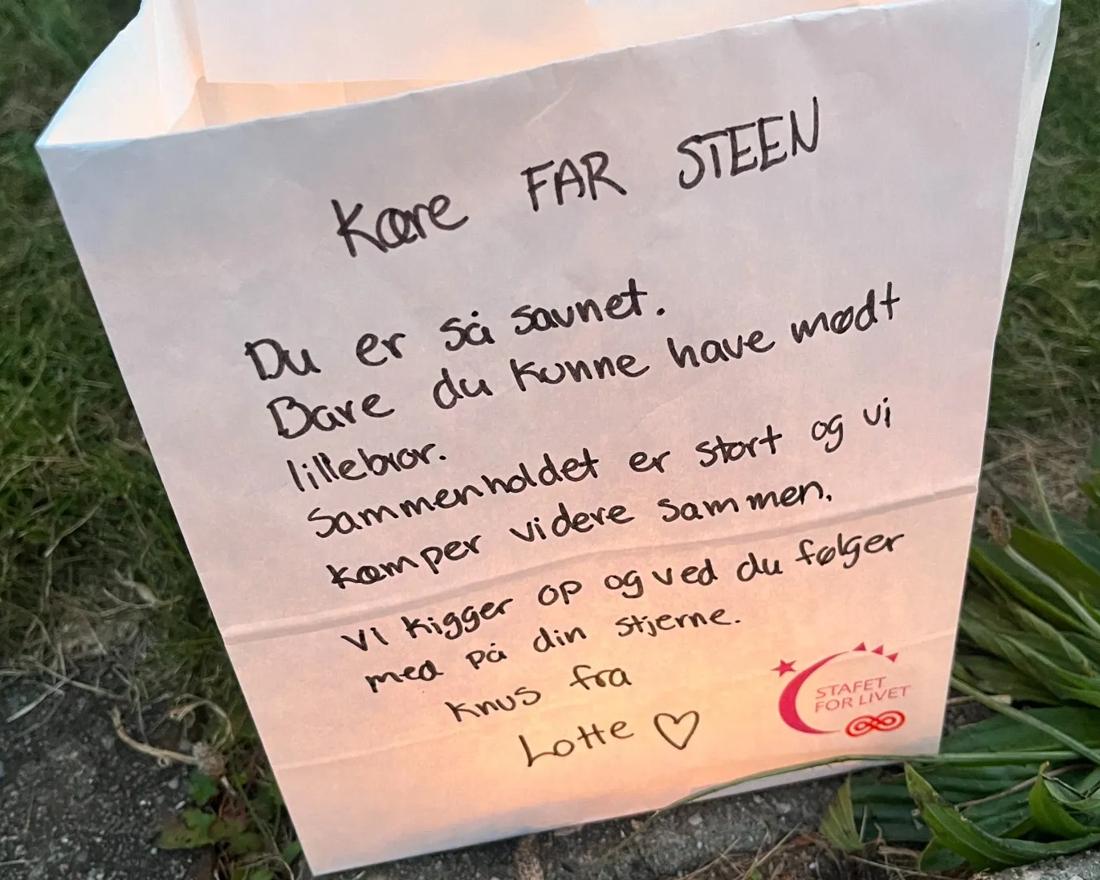 Kære FAR STEEN
Du er så savnet.
Bare du kunne have mødt
lillebror.
Sammenholdet er stort og vi
kæmper videre sammen.
Vi kigger op og ved du følger
med på din stjerne.
Knus fra
Lotte ♡
STAFET
FOR LIVET